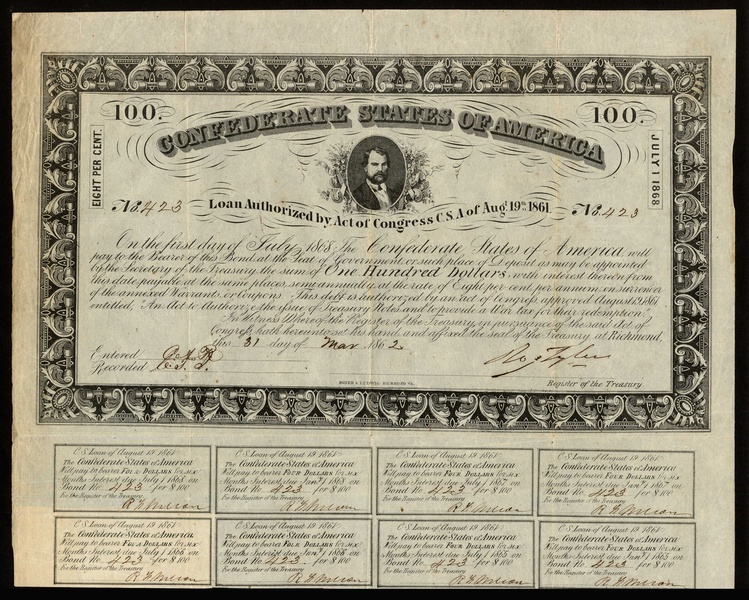 100.
100.
CONFEDERATE STATES OF AMERICA
EIGHT PER CENT.
JULY 1 1868
No. 423
Loan Authorized by Act of Congress C.S.A of Augt. 19th. 1861.
No. 423
On the first day of July 1868 The Confederate States of America will
pay to the Bearer of this Bond at the Seat of Government, or such place of Deposit as may be appointed
by the Secretary of the Treasury, the sum of One Hundred Dollars, with interest thereon from
this date, payable at the same places, semi annually, at the rate of Eight per cent per annum, on surrender
of the annexed Warrants, or Coupons. This debt is authorized by an act of Congress approved August 19, 1861
entitled, "An Act to Authorize the Issue of Treasury Notes, and to provide a War tax for their redemption."
In witness Whereof, the Register of the Treasury, in pursuance of the said Act of
Congress, hath hereunto set his hand, and affixed the seal of the Treasury, at Richmond,
this 31 day of Mar 1862
Entered
Recorded
Ro. Tyler
HOYER & LUDWIG. RICHMOND VA.
Register of the Treasury
C.S. Loan of August 19 1861
The Confederate States of America
Will pay to bearer FOUR DOLLARS for six
Months Interest due July 1 1868 on
Bond No. 423 for $100
For the Register of the Treasury
C.S. Loan of August 19 1861
The Confederate States of America
Will pay to bearer FOUR DOLLARS for six
Months Interest due Jany. 1 1868 on
Bond No. 423 for $100
For the Register of the Treasury
C.S. Loan of August 19 1861
The Confederate States of America
Will pay to bearer FOUR DOLLARS for six
Months Interest due July 1 1867 on
Bond No. 423 for $100
For the Register of the Treasury
C.S. Loan of August 19 1861
The Confederate States of America
Will pay to bearer FOUR DOLLARS for six
Months Interest due Jany. 1 1867 on
Bond No. 423 for $100
For the Register of the Treasury
C.S. Loan of August 19 1861
The Confederate States of America
Will pay to bearer FOUR DOLLARS for six
Months Interest due July 1 1866 on
Bond No. 423 for $100
For the Register of the Treasury
C.S. Loan of August 19 1861
The Confederate States of America
Will pay to bearer FOUR DOLLARS for six
Months Interest due Jany. 1 1866 on
Bond No. 423 for $100
For the Register of the Treasury
C.S. Loan of August 19 1861
The Confederate States of America
Will pay to bearer FOUR DOLLARS for six
Months Interest due July 1 1865 on
Bond No. 423 for $100
For the Register of the Treasury
C.S. Loan of August 19 1861
The Confederate States of America
Will pay to bearer FOUR DOLLARS for six
Months Interest due Jany. 1 1865 on
Bond No. 423 for $100
For the Register of the Treasury